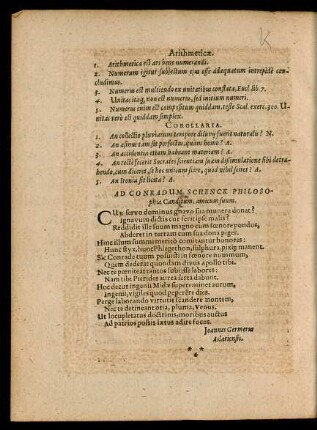 Arithmeticæ.
1. Arithmetica est ars bene numerandi.
2. Numerum igitur subiectum eius esse adæquatum intrepidè con-
cludimus.
3. Numerus est multitudo ex unitatibus constata, Eucl. lib. 7.
4. Unitas itaq; non est numerus, sed initium numeri.
5. Numerus enim est compositum quiddam, teste Scal. exerc. 300. U-
nitas verò est quiddam simplex.
COROLLARIA.
1. An collectio plurium tempore diluvij fuerit naturalis? N.
2. An asinus tam sit perfectus, quàm homo? A.
3. An accidentia etiam habeant materiam? A.
4. An rectè fecerit Socrates scientiam suam dissimulatione sibi detra-
hendo, cum diceret, se hoc unicum scire, quod nihil sciret? A.
5. An Ironia sit licita? A.
AD CONRADUM SCHENCK PHILOSO-
phiæ Candidatum, amicum suum.
CUr servo dominus gnavo sua munera donat?
Ignavum dictis cur ferit ipse malis?
Reddidit ille suum magno cum fœnore pondus,
Abderet in terram cum sua dona piger.
Hinc illum summa meritò comitantur honores:
Hunc styx, hunc Phlegethon, sulphura, pix premunt.
Sic Conrade tuum posuisti in fœnore nummum,
Quem dederat quondam dives Apollo tibi.
Nec te pœnitet tantos subijsse labores:
Nam tibi Pierides aurea serta dabunt.
Hoc decus ingenii Midæ superemineat aurum,
ingenii, vigiles quod peperere dies.
Perge laborando virtutis scandere montem,
Nec te detineant otia, pluma, Venus.
Ut locupletatus doctrinis, moribus auctus
Ad patrios postis lætus adire focos.
Joannes Germerus
Adariensis.